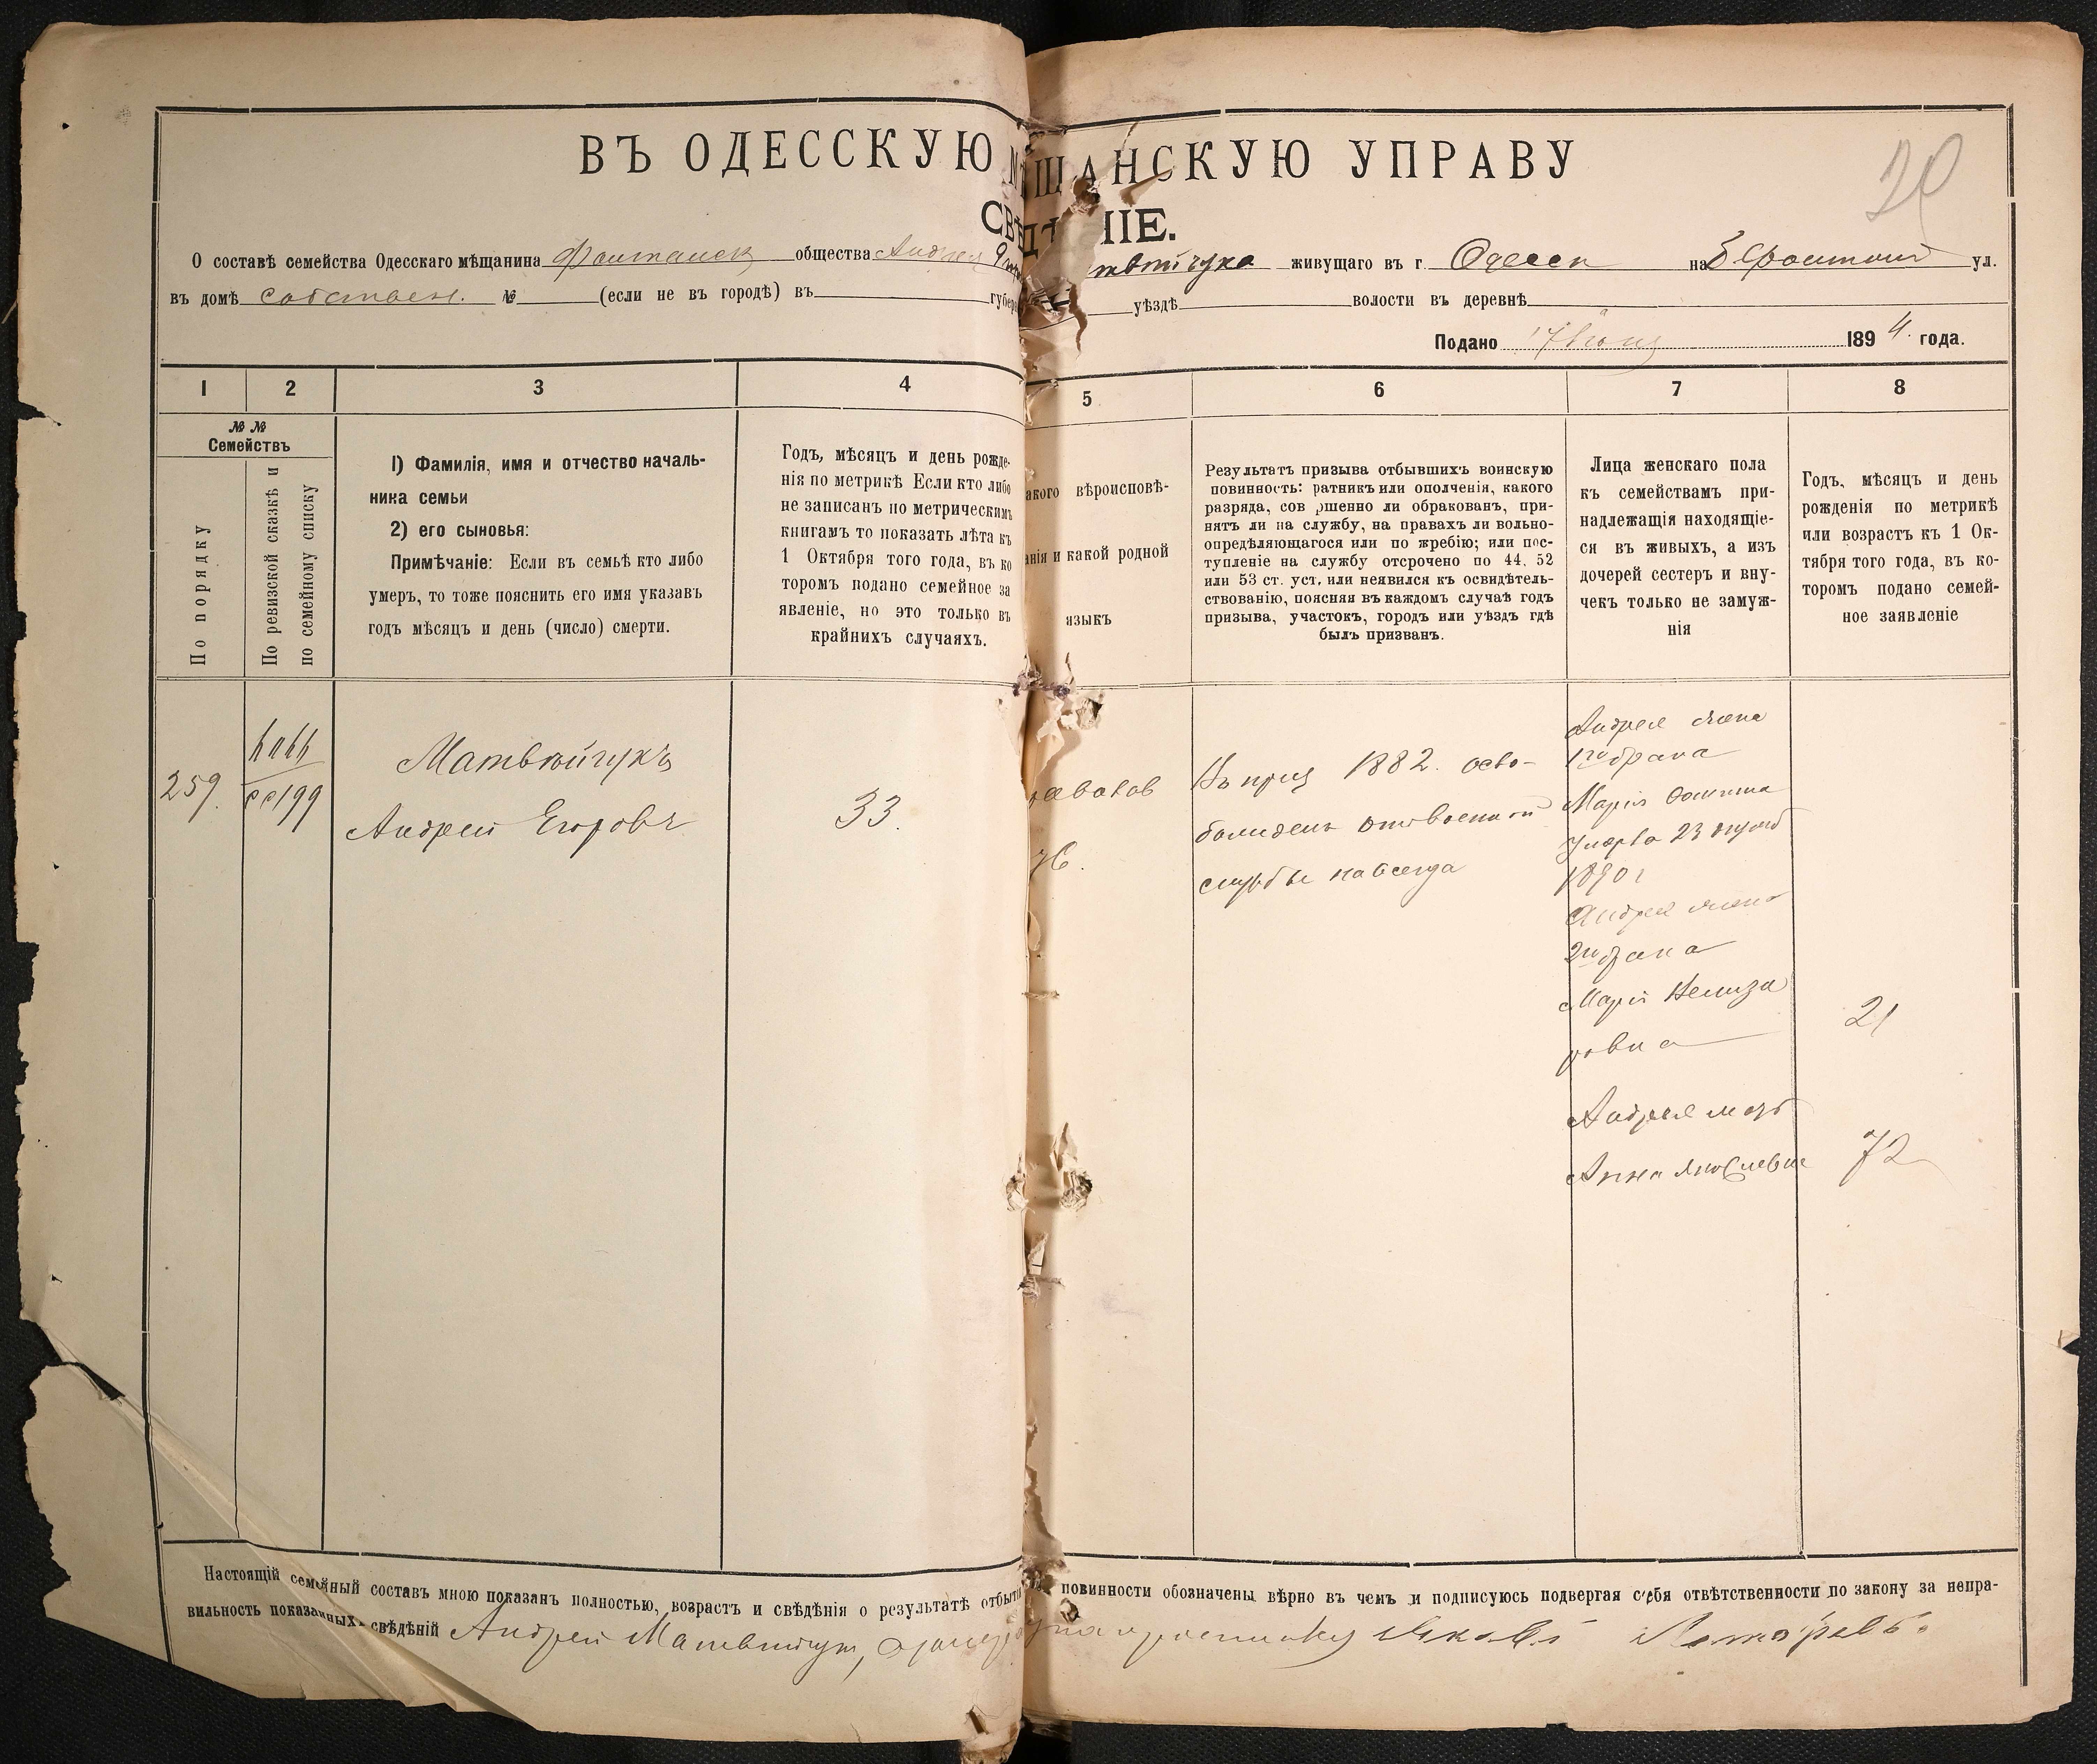 20
ВЪ ОДЕССКУЮ МѢЩАНСКУЮ УПРАВУ
СВѢДѢНІЕ.
О составѣ семейства Одесскаго мѣщанина Фонтанск общества Андрея живущаго въ г. Одессѣ на Б Фонтанѣ ул.
въ домѣ собствен. № (если не въ городѣ) въ губер уѣздѣ волости въ деревнѣ
Подано 1894 года.
1 2 3 4 5 6 7 8
№ №
Семействъ
По порядку
По ревизской сказкѣ и
по семейному списку
1) Фамилія, имя и отчество началь-
ника семьи
2) его сыновья:
Примѣчаніе: Если въ семьѣ кто либо
умеръ, то тоже пояснить его имя указавъ
годъ мѣсяцъ и день (число) смерти.
Годъ, мѣсяцъ и день рожде-
нія по метрикѣ Если кто либо
не записанъ по метрическимъ
книгамъ то показать лѣта къ
1 Октября того года, въ ко
торомъ подано семейное за
явленіе, но это только въ
крайнихъ случаяхъ.
акого вѣроисповѣ-
анія и какой родной
языкъ
Результатъ призыва отбывшихъ воинскую
повинность: ратникъ или ополченія, какого
разряда, сов ршенно ли обракованъ, при-
нятъ ли на службу, на правахъ ли вольно-
опредѣляющагося или по жребію; или пос-
тупленіе на службу отсрочено по 44. 52
или 53 ст. уст. или неявился къ освидѣтель-
ствованію, поясняя въ каждомъ случаѣ годъ
призыва, участокъ, городъ или уѣздъ гдѣ
былъ призванъ.
Лица женскаго пола
къ семействамъ при-
надлежащія находящіе-
ся въ живыхъ, а изъ
дочерей сестеръ и вну-
чекъ только не замуж-
нія
Годъ, мѣсяцъ и день
рожденія по метрикѣ
или возрастъ къ 1 Ок-
тября того года, въ ко-
торомъ подано семей-
ное заявленіе
259.
199
Матвѣйчукъ
Андрей Егоровъ
33.
Въ приз 1882. осво-
божденъ отъ военной
службы навсегда
Андрея жена
1го брака
Марія Фомина
умерла 23
1890 г
Андрея жена
2го брака
Марія
ровна
21
Андрея мать
Анна Яковлевна
72
Настоящій семейный составъ мною показанъ полностью, возрастъ и свѣдѣнія о результатѣ отбыті повинности обозначены вѣрно въ чемъ и подписуюсь подвергая себя отвѣтственности по закону за непра-
вильность показанныхъ свѣдѣній Андрей Матвѣйчукъ,